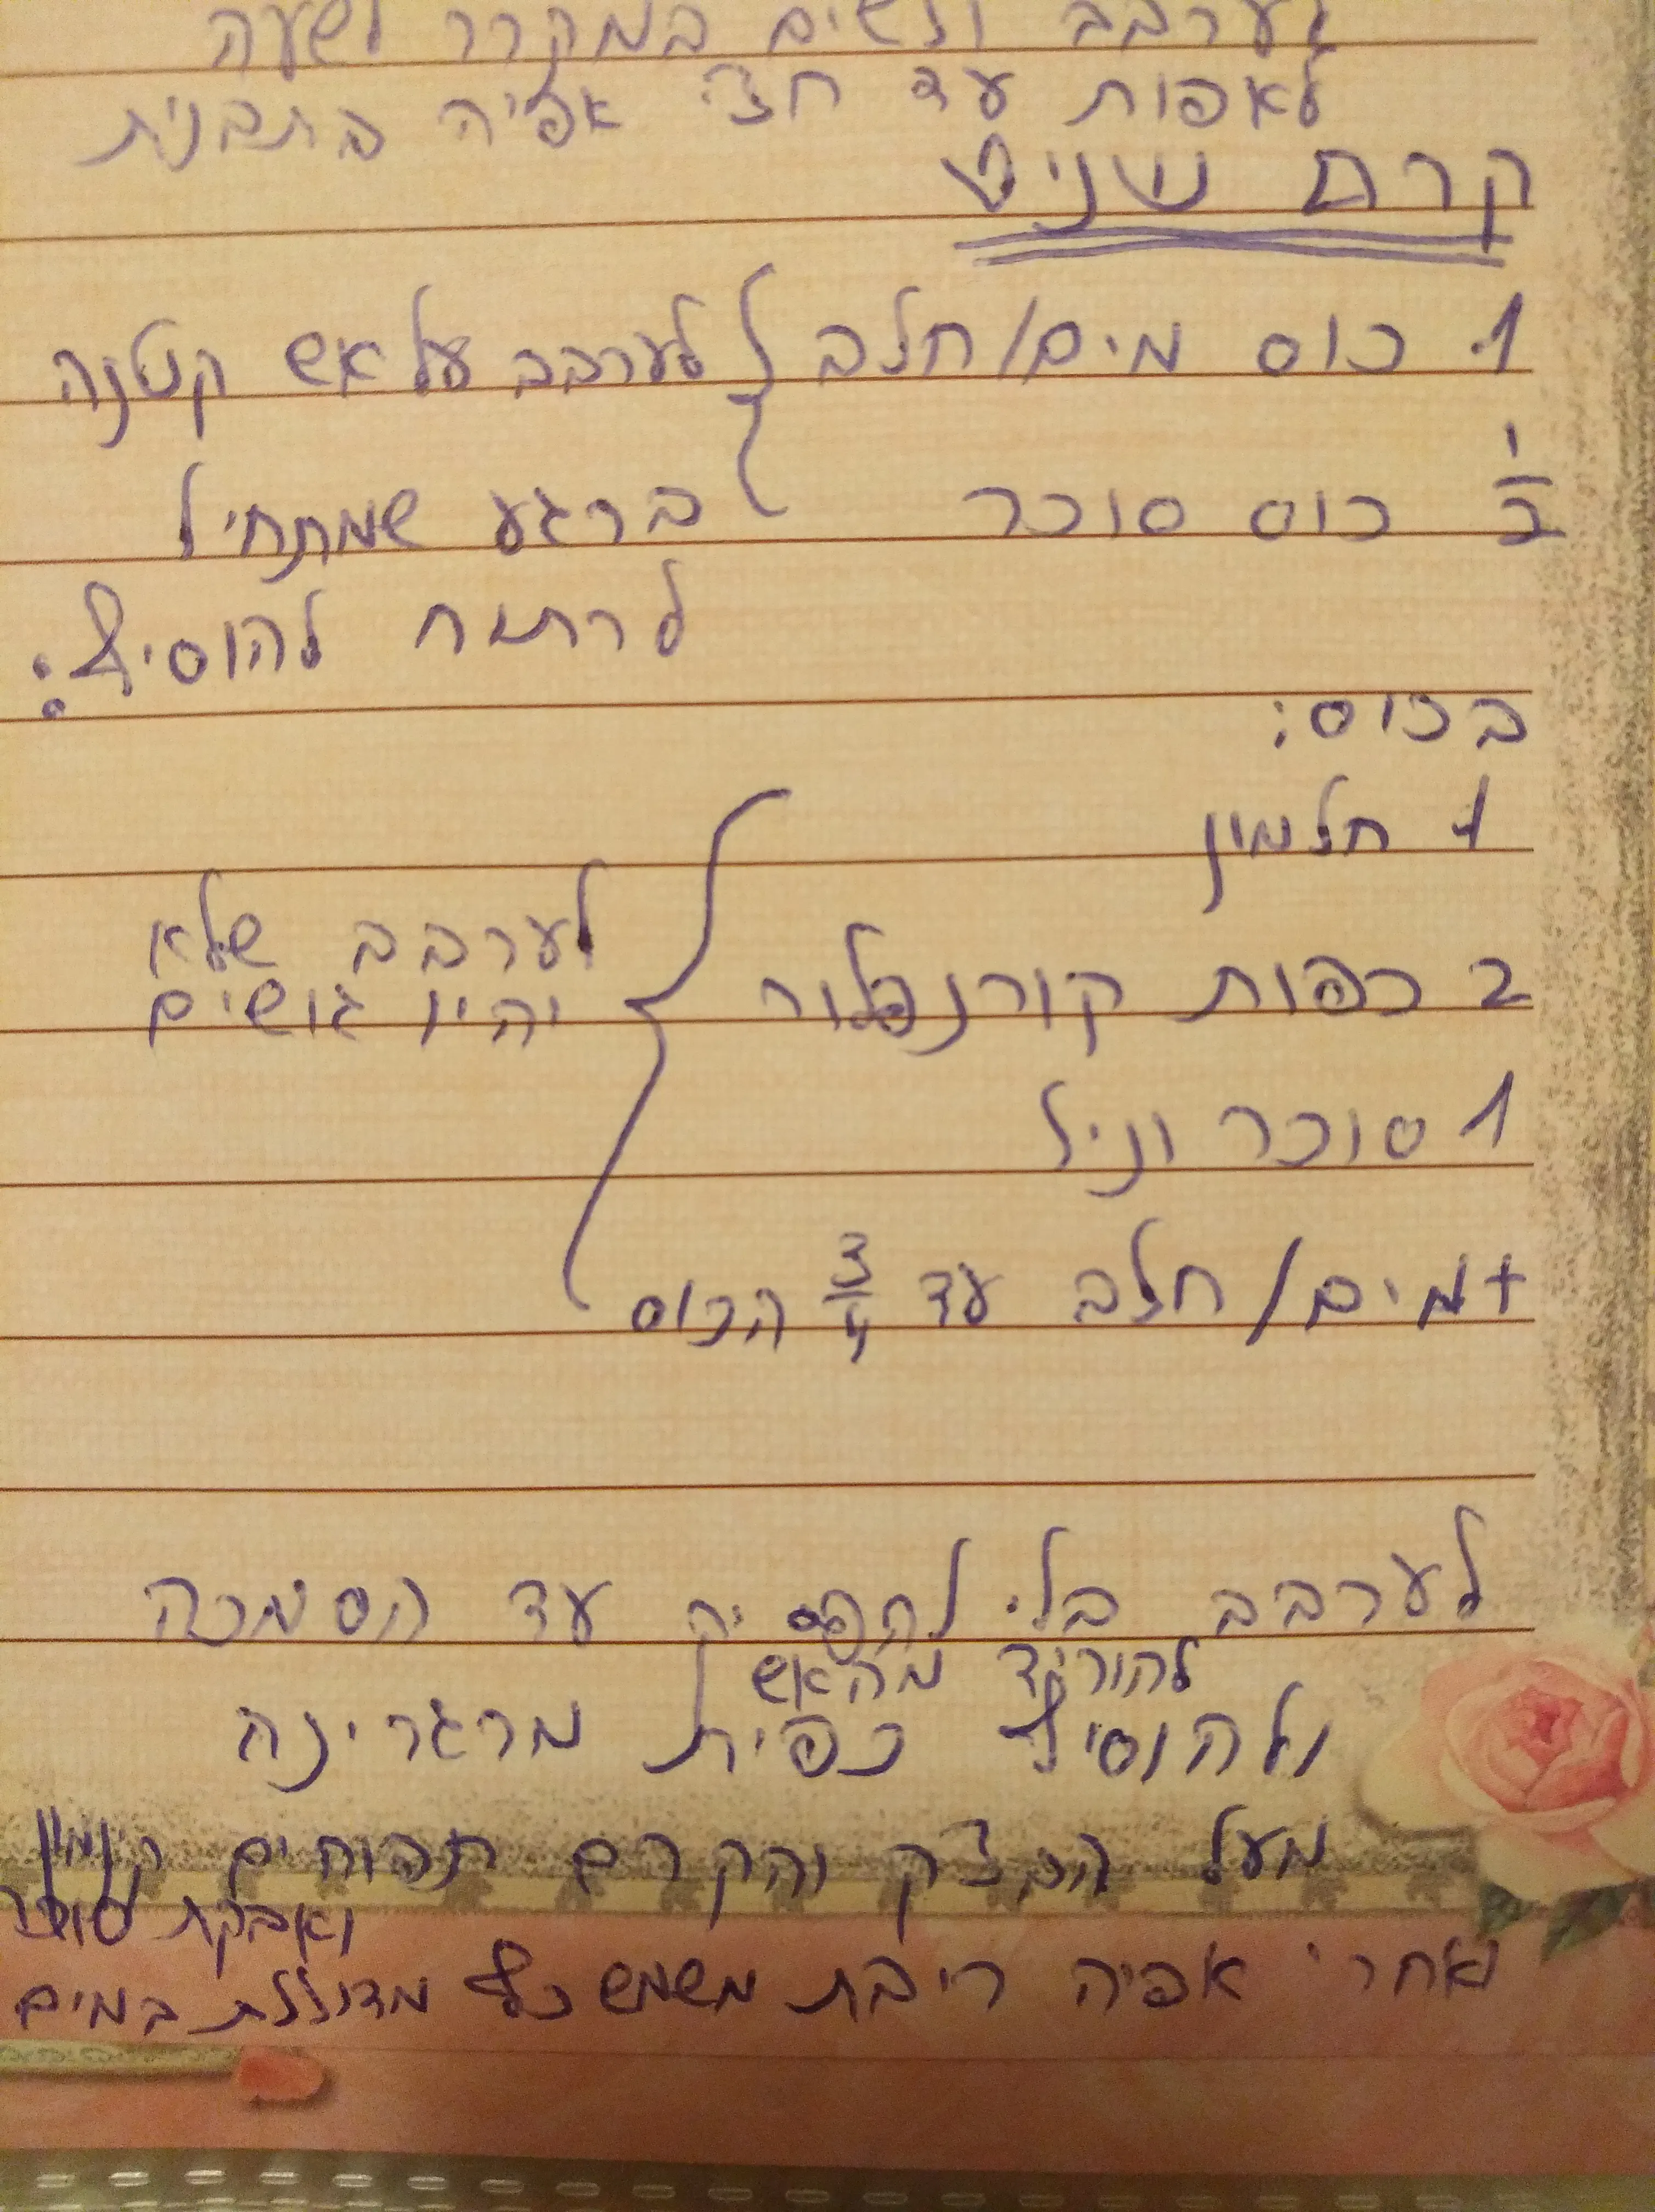 לערבב ולשים במקרר לשעה
לאפות עד חצי אפיה בתבנית
קרם שניט
1 כוס מים/חלב לערבב על אש קטנה
1/2 כוס סוכר ברגע שמתחיל
לרתוח להוסיף:
בכוס:
1 חלמון
לערבב שלא
2 כפות קורנפלור יהיו גושים
1 סוכר וניל
+ מים/חלב עד 3/4 הכוס
לערבב בלי להפסיק עד הסמכה
להוריד מהאש
ולהוסיף כפית מרגרינה
מעל הבצק והקרם תפוחים קינמון
ואבקת סוכר
אחרי אפיה ריבת משמש כף מדוללת במים